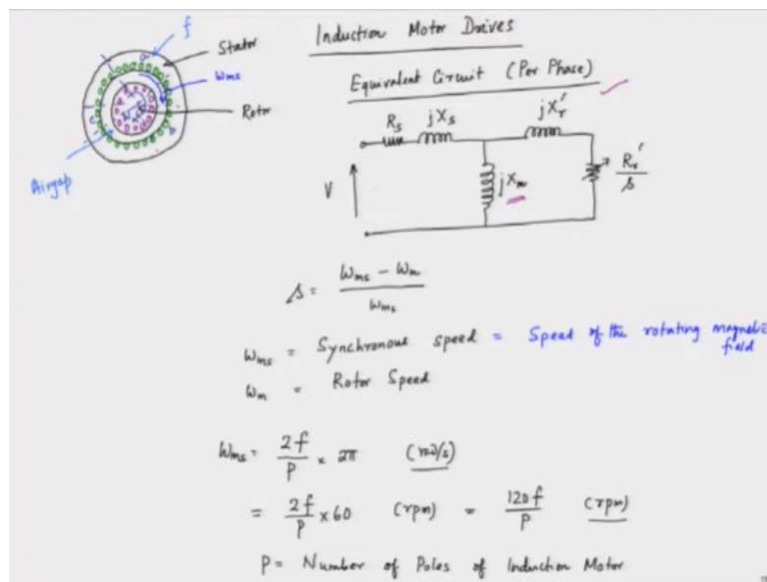 f
Stator
ωms
Rotor
Airgap
Induction Motor Drives
Equivalent Circuit (Per Phase)
Rs
jXs
jXr'
V
jXm
Rr'/s
s = (ωms - ωm)/ωms
ωms = Synchronous speed = Speed of the rotating magnetic
field
ωm = Rotor Speed
ωms = 2f/P × 2π (rad/s)
= 2f/P × 60 (rpm) = 120f/P (rpm)
P = Number of Poles of Induction Motor